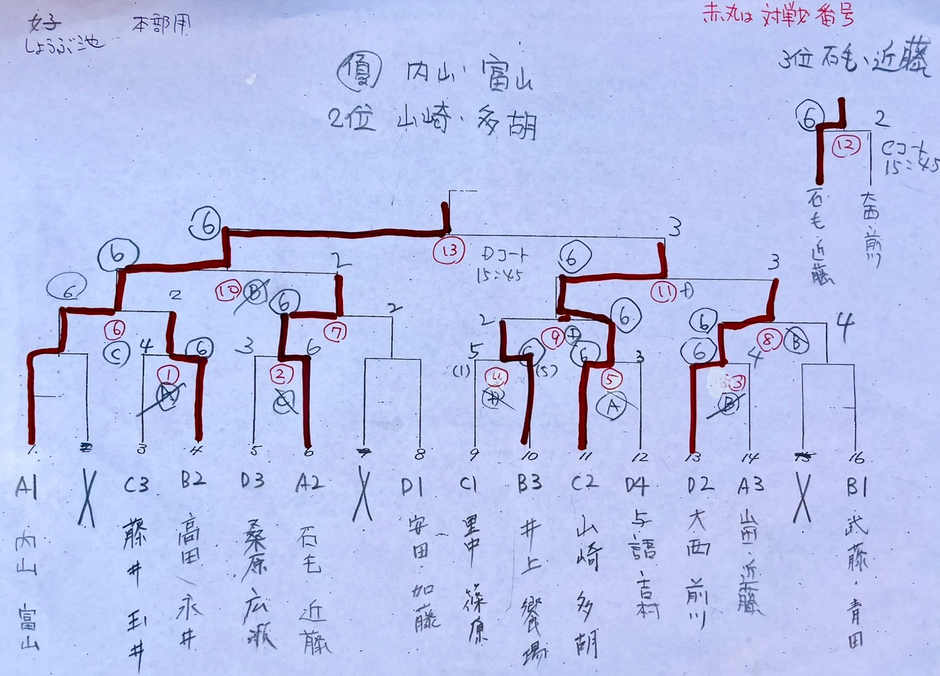 女子 本部用
しょうぶ池
赤丸は対戦番号
優 内山・富山
2位 山崎・多胡
3位 石毛・近藤
6 2
12 Cコート
15:45
石毛 近藤
大西・前川
6 3
13 Dコート
15:45
6 2 6 3
10 B 11 D
6 2 6 2 2 6 6 4
6 C 7 9 D 8 B
4 6 3 6 5 6 6 3 6 4
(1) (5)
1 A 2 C 4 D 5 A 3 B
1 2 3 4 5 6 7 8 9 10 11 12 13 14 15 16
A1 X C3 B2 D3 A2 X D1 C1 B3 C2 D4 D2 A3 X B1
内山 富山
藤井 玉井
高田 永井
桑原 広瀬
石毛 近藤
安田・加藤
里中 篠原
井上 饗場
山崎 多胡
与語・吉村
大西 前川
近藤
武藤・青田